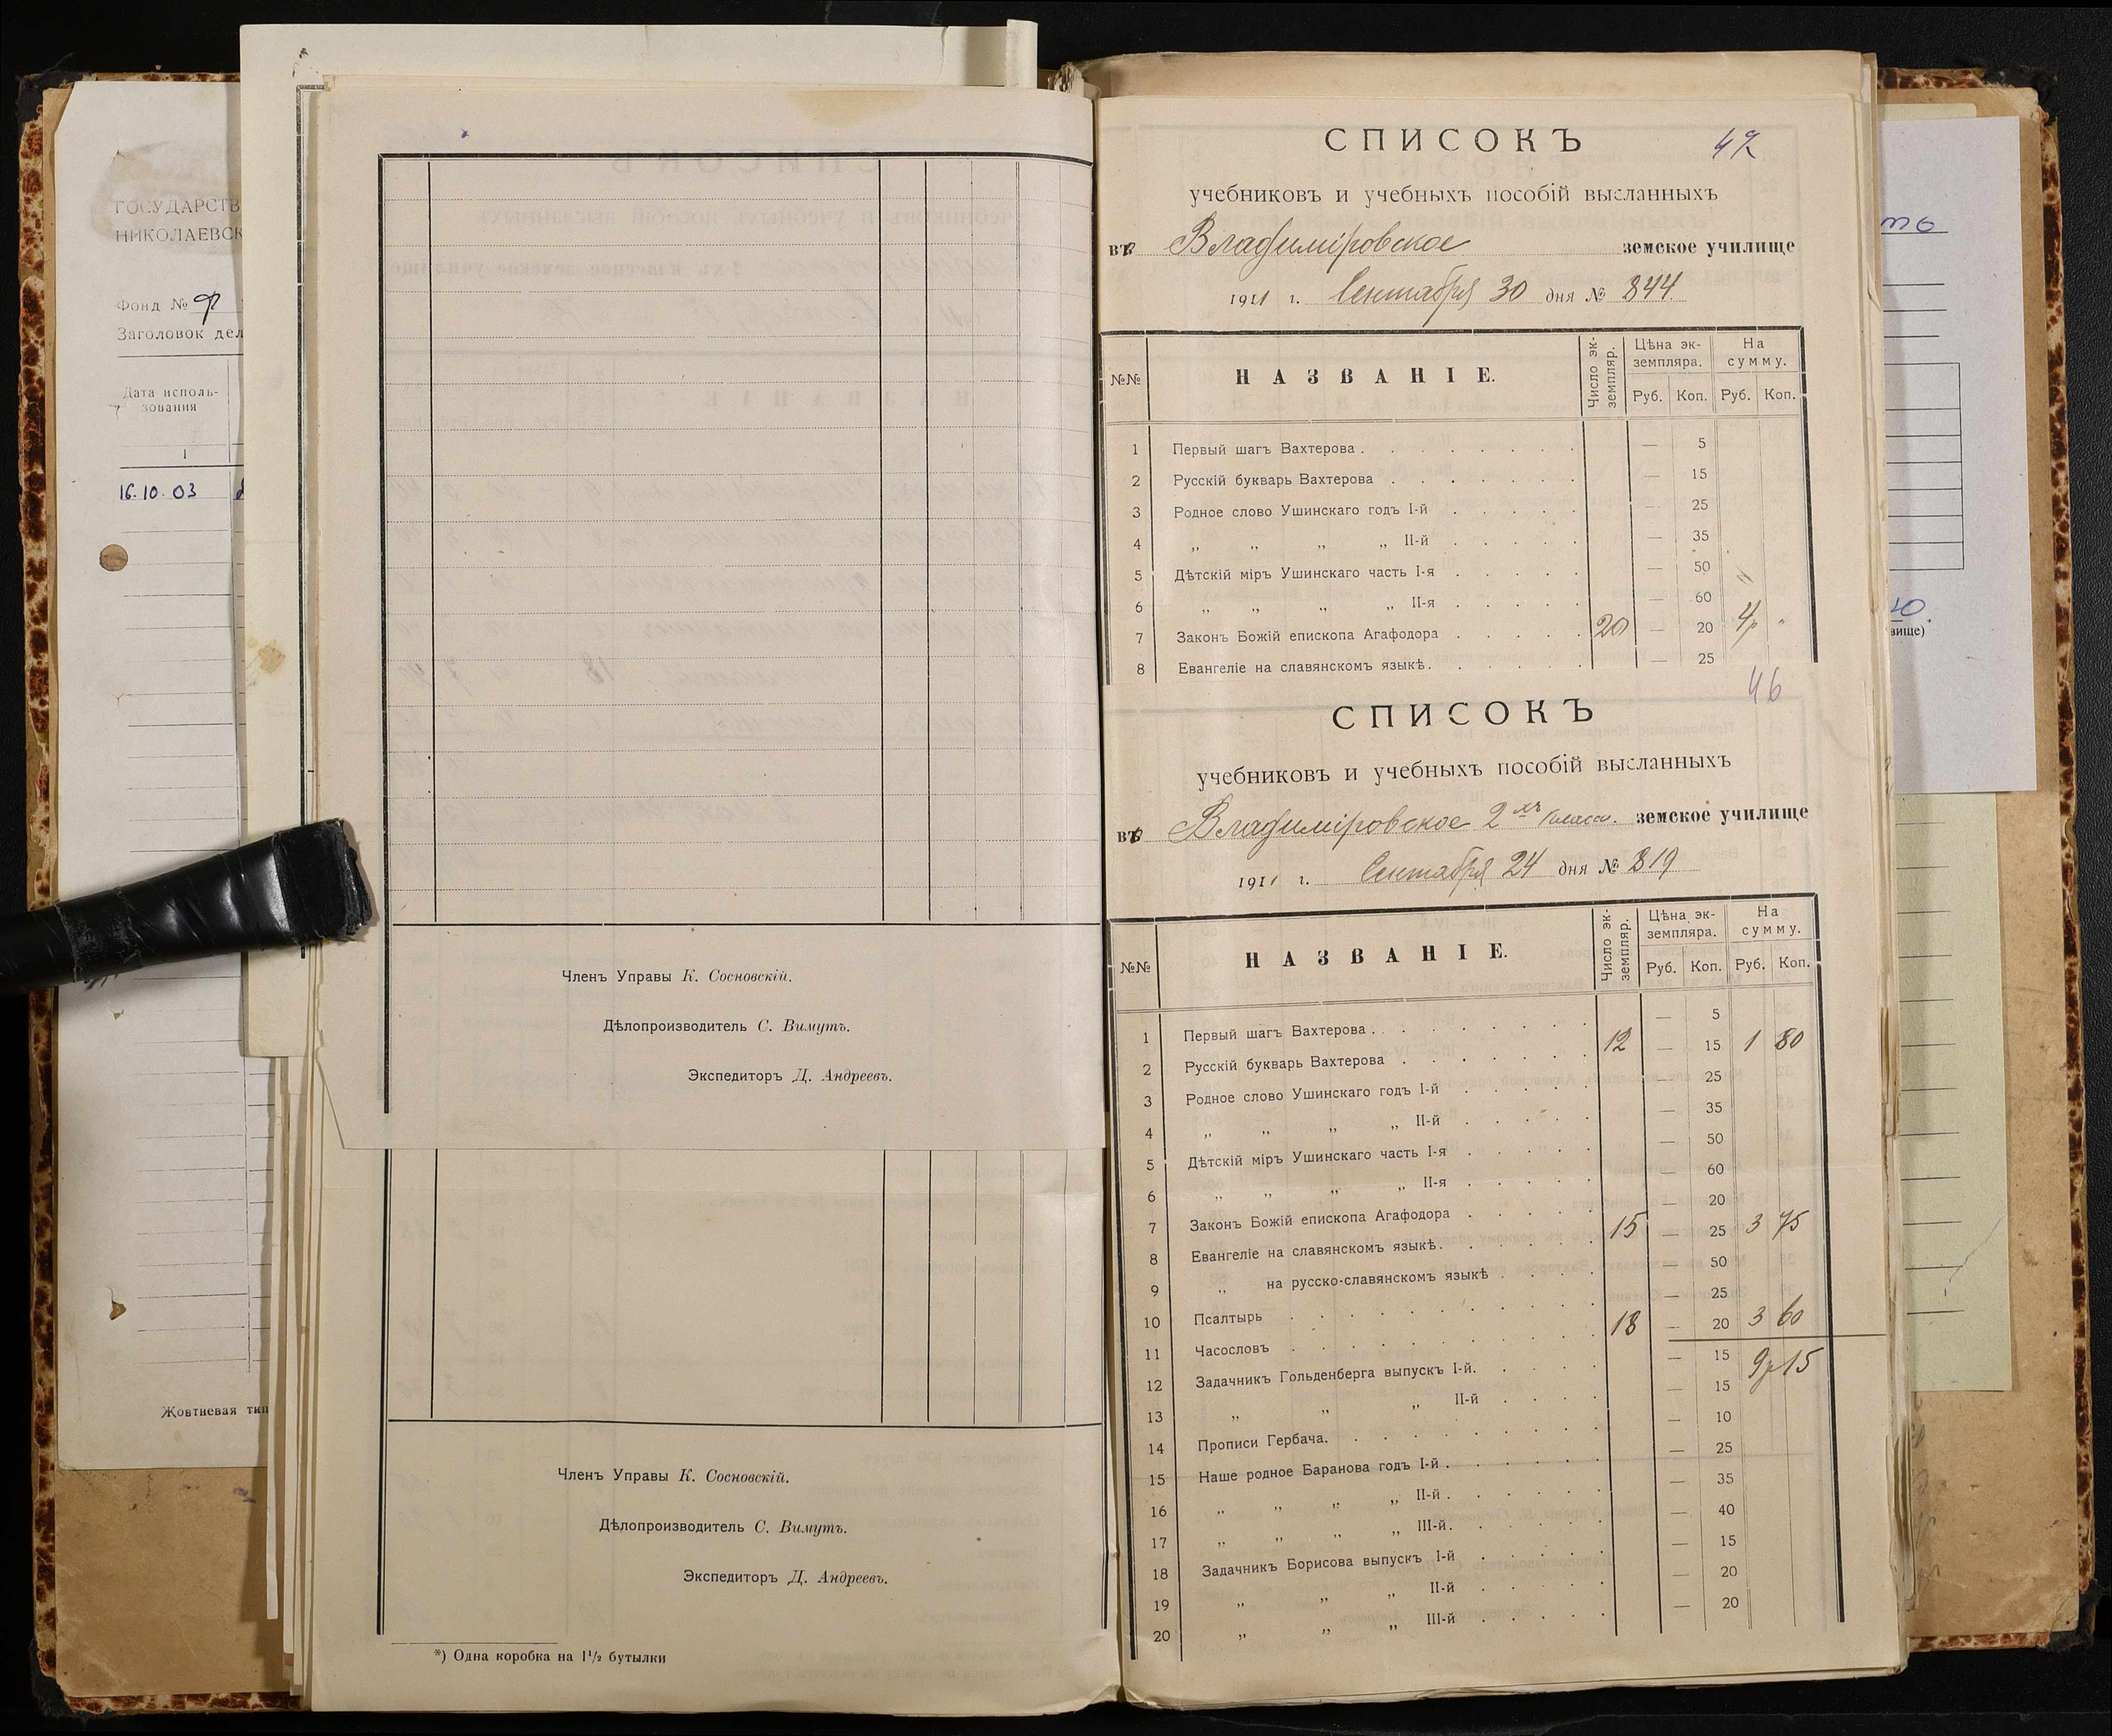 ГОСУДАРСТВ
НИКОЛАЕВСК
Фонд №
Заголовок дел
Дата исполь-
зования
1
16.10.03
Жовтневая тип
Членъ Управы К. Сосновскій.
Дѣлопроизводитель С. Вимутъ.
Экспедиторъ Д. Андреевъ.
Членъ Управы К. Сосновскій.
Дѣлопроизводитель С. Вимутъ.
Экспедиторъ Д. Андреевъ.
*) Одна коробка на 1½ бутылки
СПИСОКЪ
учебниковъ и учебныхъ пособій высланныхъ
въ Владиміровское земское училище
1911 г. Сентября 30 дня № 844
№№ НАЗВАНІЕ. Число эк-земпляр. Цѣна эк-земпляра. На сумму.
Руб. Коп. Руб. Коп.
1 Первый шагъ Вахтерова . — 5
2 Русскій букварь Вахтерова . — 15
3 Родное слово Ушинскаго годъ I-й . — 25
4 „ „ „ „ II-й . — 35
5 Дѣтскій міръ Ушинскаго часть I-я . — 50
6 „ „ „ „ II-я . — 60
7 Законъ Божій епископа Агафодора . 20 — 20 4р "
8 Евангеліе на славянскомъ языкѣ. — 25
46
СПИСОКЪ
учебниковъ и учебныхъ пособій высланныхъ
въ Владиміровское 2хъ класс. земское училище
1911 г. Сентября 24 дня № 819
№№ НАЗВАНІЕ. Число эк-земпляр. Цѣна эк-земпляра. На сумму.
Руб. Коп. Руб. Коп.
1 Первый шагъ Вахтерова . — 5
2 Русскій букварь Вахтерова . 12 — 15 1 80
3 Родное слово Ушинскаго годъ I-й . — 25
4 „ „ „ „ II-й . — 35
5 Дѣтскій міръ Ушинскаго часть I-я . — 50
6 „ „ „ „ II-я . — 60
7 Законъ Божій епископа Агафодора . — 20
8 Евангеліе на славянскомъ языкѣ. 15 — 25 3 75
9 „ на русско-славянскомъ языкѣ . — 50
10 Псалтырь . — 25
11 Часословъ . 18 — 20 3 60
12 Задачникъ Гольденберга выпускъ I-й. — 15 9р 15
13 „ „ „ II-й . — 15
14 Прописи Гербача. — 10
15 Наше родное Баранова годъ I-й . — 25
16 „ „ „ „ II-й . — 35
17 „ „ „ „ III-й. — 40
18 Задачникъ Борисова выпускъ I-й . — 15
19 „ „ „ II-й . — 20
20 „ „ „ III-й . — 20